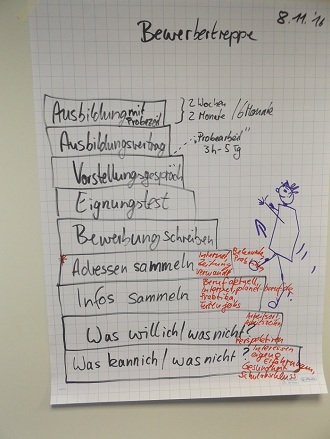 8.11.'16
Bewerbertreppe
Ausbildung mit Probezeit
2 Wochen
2 Monate / 6 Monate
Ausbildungsvertrag
"Probearbeit"
3h-5Tg
Vorstellungsgespräch
Eignungstest
Bewerbung schreiben
Adressen sammeln
Internet
Zeitung
Bekannte
Infos sammeln
Beruf aktuell
Praktika
Was will ich / was nicht?
Arbeitszeit
Perspektiven
Was kann ich / was nicht?
Interessen
Erfahrungen
Gesundheit
Schulabschluss